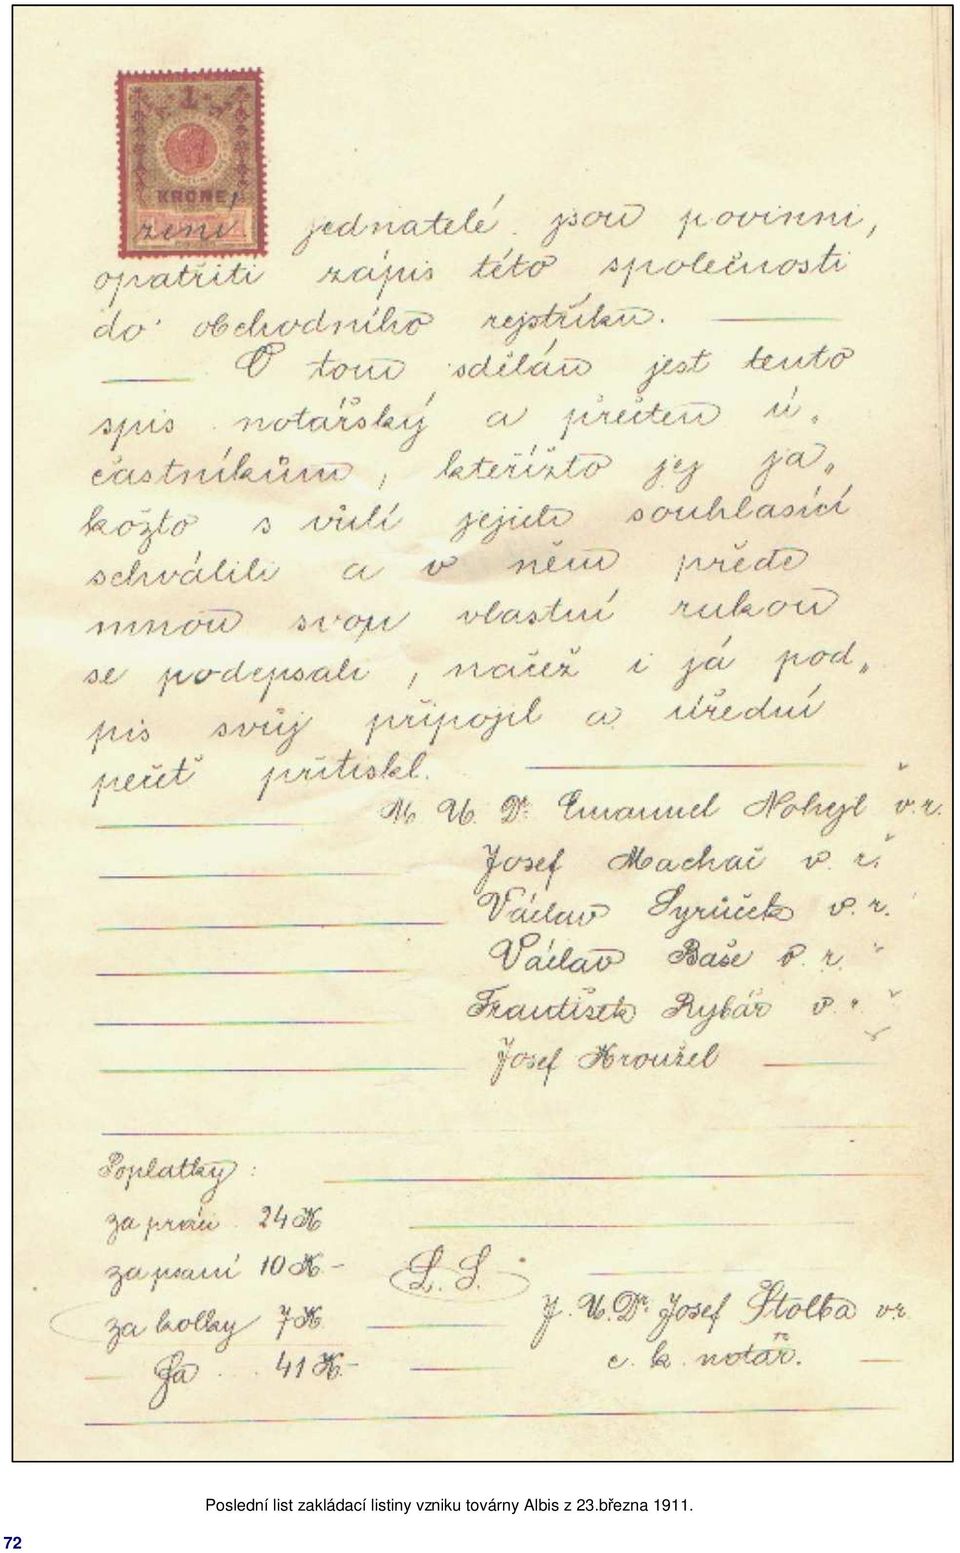 1
KRONE
zení, jednatelé jsou povinni,
opatřiti zápis této společnosti
do obchodního rejstříku.
O tom sdělán jest tento
spis notářský a přečten ú„
častníkům, kteřížto jej ja„
kožto s vůlí jejich souhlasící
schválili a v něm přede
mnou svou vlastní rukou
se podepsali, načež i já pod„
pis svůj připojil a úřední
pečeť přitiskl.
M. U. Dr. Emanuel Nohejl v. r.
Josef Machač v. r.
Václav Syrůček v. r.
Václav Baše v. r.
František Rybář v. r.
Josef Kroužel
Poplatky:
za práci 24 K
za psaní 10 K-
za kolky 7 K
Sa . . . 41 K-
L. S.
J. U. Dr. Josef Štolba vr
c. k. notář.
Poslední list zakládací listiny vzniku továrny Albis z 23.března 1911.
72